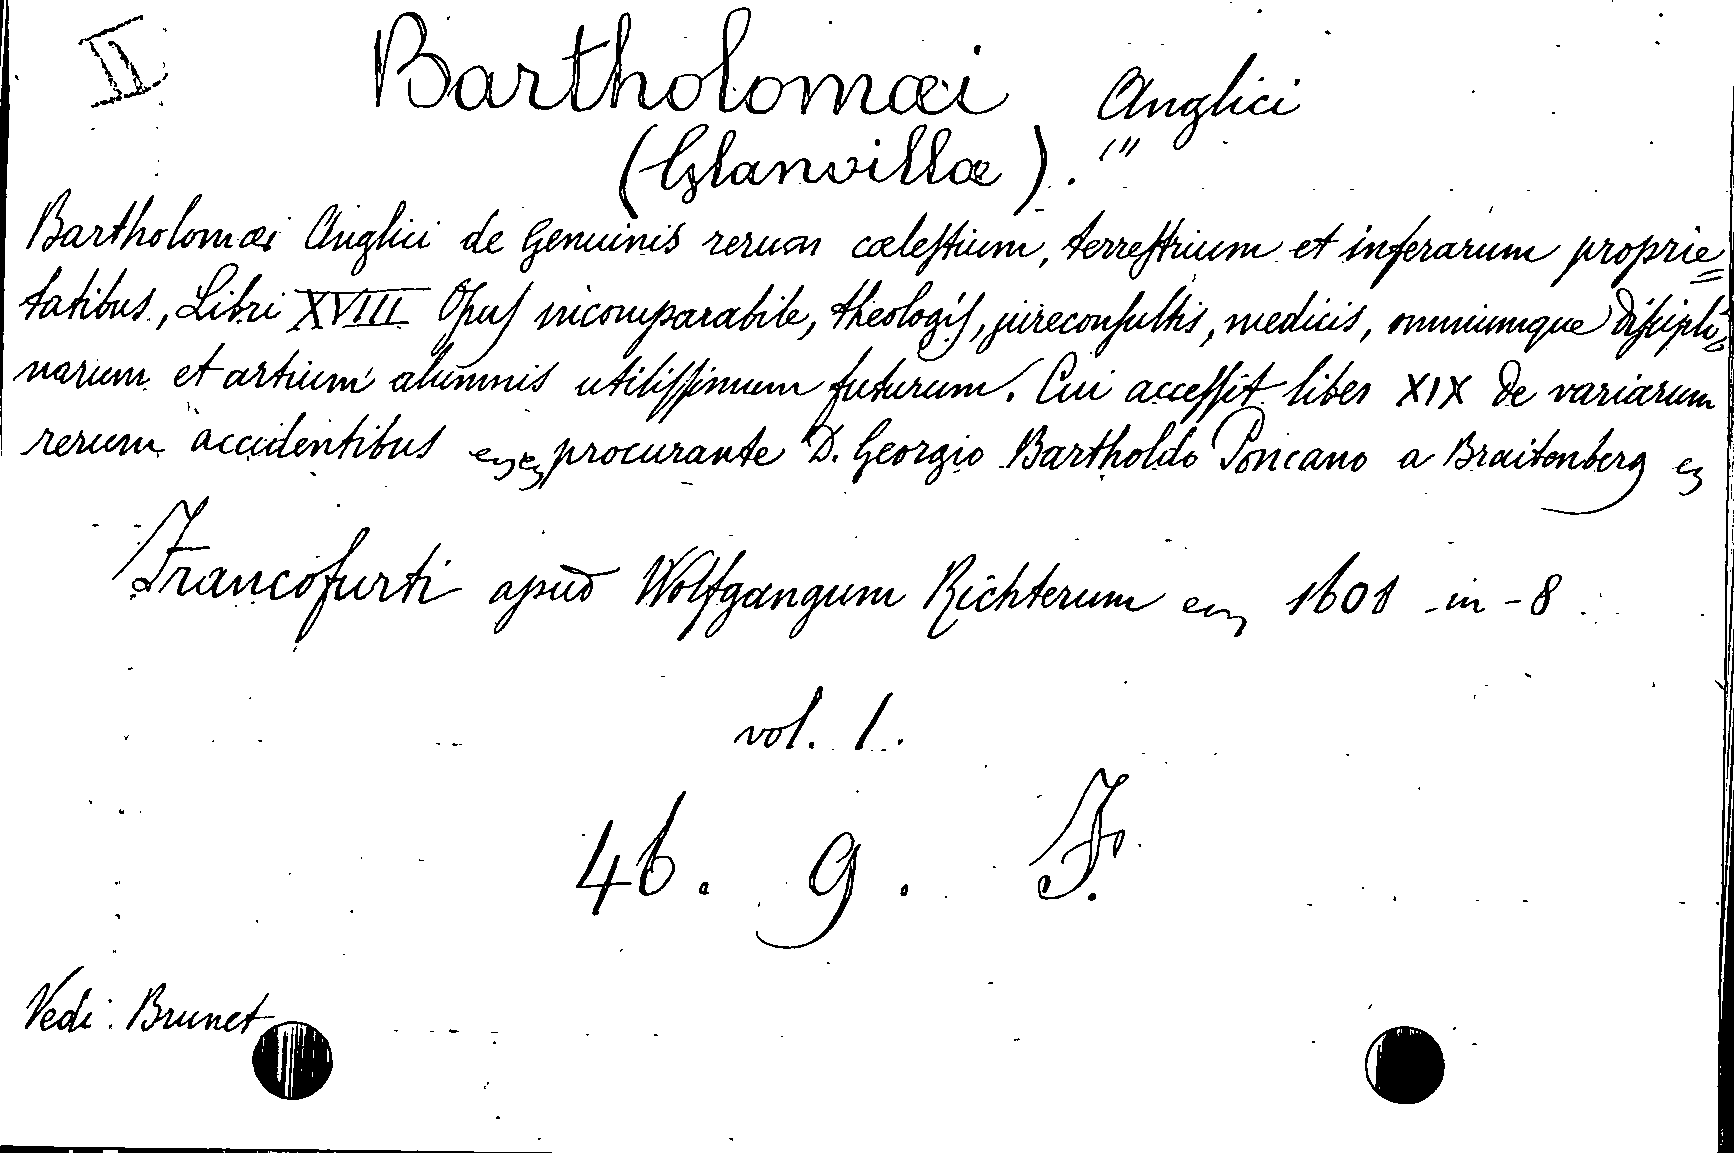 II
Bartholomæi Anglici
(Glanvillæ). "'
Bartholomæi Anglici de Genuinis rerum cælestium, terrestrium et inferarum proprie=
tatibus, Libri XVIII Opus incomparabile, theologis, jureconsultis, medicis, omniumque discipli=
narum et artium alumnis utilissimum futurum. Cui accessit liber XIX de variarum
rerum accidentibus procurante D. Georgio Bartholdo Poncano a Braitenberg
Francofurti apud Wolfgangum Richterum 1601 in-8
vol. 1.
46. 9. F.
Vedi: Brunet